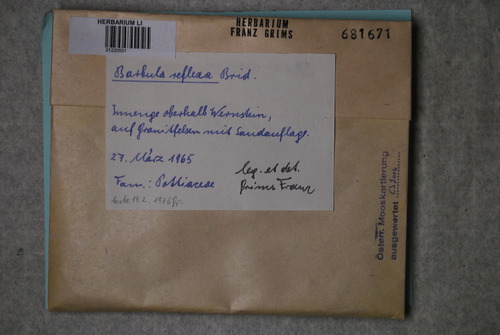 HERBARIUM LI
HERBARIUM
FRANZ GRIMS
681671
Barbula reflexa Brid.
Innenge oberhalb Wernstein,
auf Granitfelsen mit Sandauflage.
27. März 1965
Fam.: Pottiaceae
leg. et det.
Grims Franz
Österr. Mooskartierung
ausgewertet